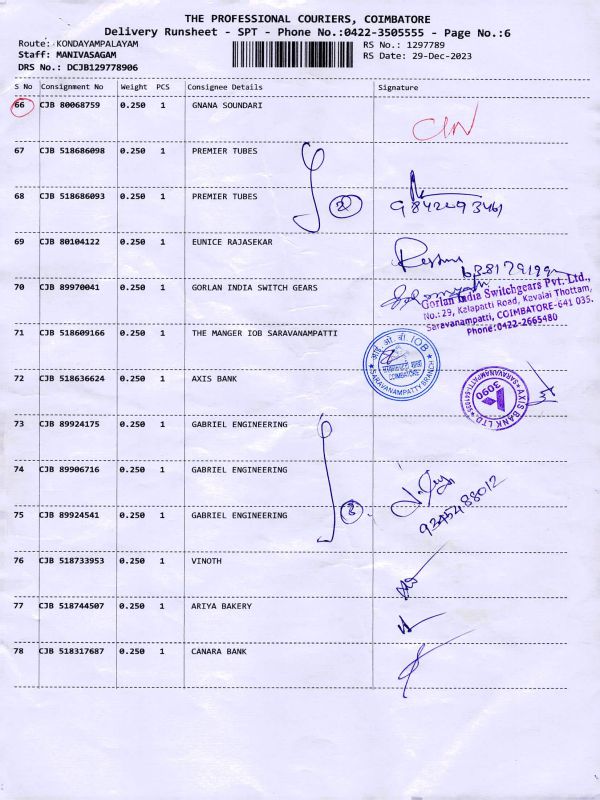 THE PROFESSIONAL COURIERS, COIMBATORE
Delivery Runsheet - SPT - Phone No.:0422-3505555 - Page No.:6
Route: KONDAYAMPALAYAM
Staff: MANIVASAGAM
DRS No.: DCJB129778906
RS No.: 1297789
RS Date: 29-Dec-2023
S No Consignment No Weight PCS Consignee Details Signature
66 CJB 80068759 0.250 1 GNANA SOUNDARI
67 CJB 518686098 0.250 1 PREMIER TUBES
68 CJB 518686093 0.250 1 PREMIER TUBES
2
69 CJB 80104122 0.250 1 EUNICE RAJASEKAR
70 CJB 89970041 0.250 1 GORLAN INDIA SWITCH GEARS
Gorlan India Switchgears Pvt. Ltd.,
No.: 29, Kalapatti Road, Kavalai Thottam,
Saravanampatti, COIMBATORE-641 035.
Phone:0422-2665480
71 CJB 518609166 0.250 1 THE MANGER IOB SARAVANAMPATTI
आई. ओ. बी IOB
COIMBATORE
SARAVANAMPATTY BRANCH
72 CJB 518636624 0.250 1 AXIS BANK
AXIS BANK LTD.
3090
73 CJB 89924175 0.250 1 GABRIEL ENGINEERING
74 CJB 89906716 0.250 1 GABRIEL ENGINEERING
9345488012
75 CJB 89924541 0.250 1 GABRIEL ENGINEERING
3
76 CJB 518733953 0.250 1 VINOTH
77 CJB 518744507 0.250 1 ARIYA BAKERY
78 CJB 518317687 0.250 1 CANARA BANK